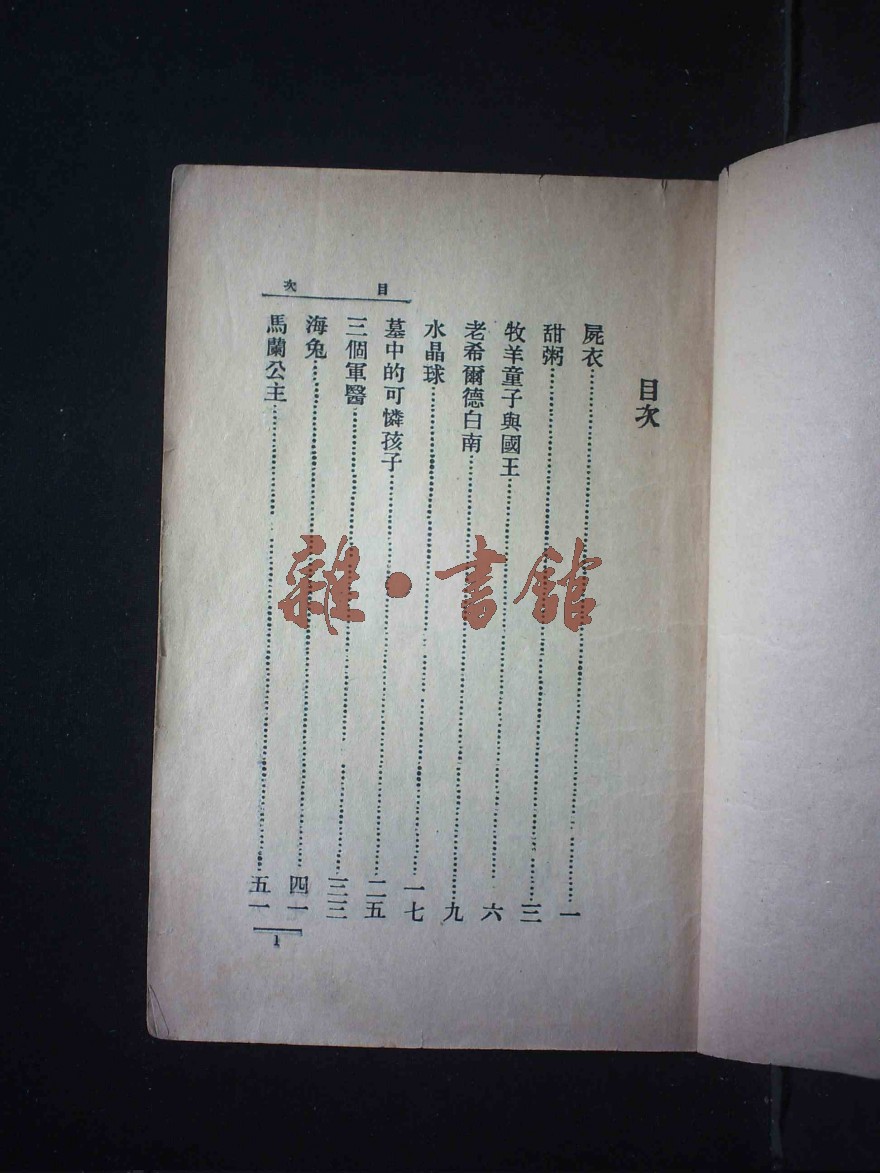 目次
屍衣 一
甜粥 三
牧羊童子與國王 六
老希爾德白南 九
水晶球 一七
墓中的可憐孩子 二五
三個軍醫 三三
海兔 四一
馬蘭公主 五一
目次
1
雜·書館